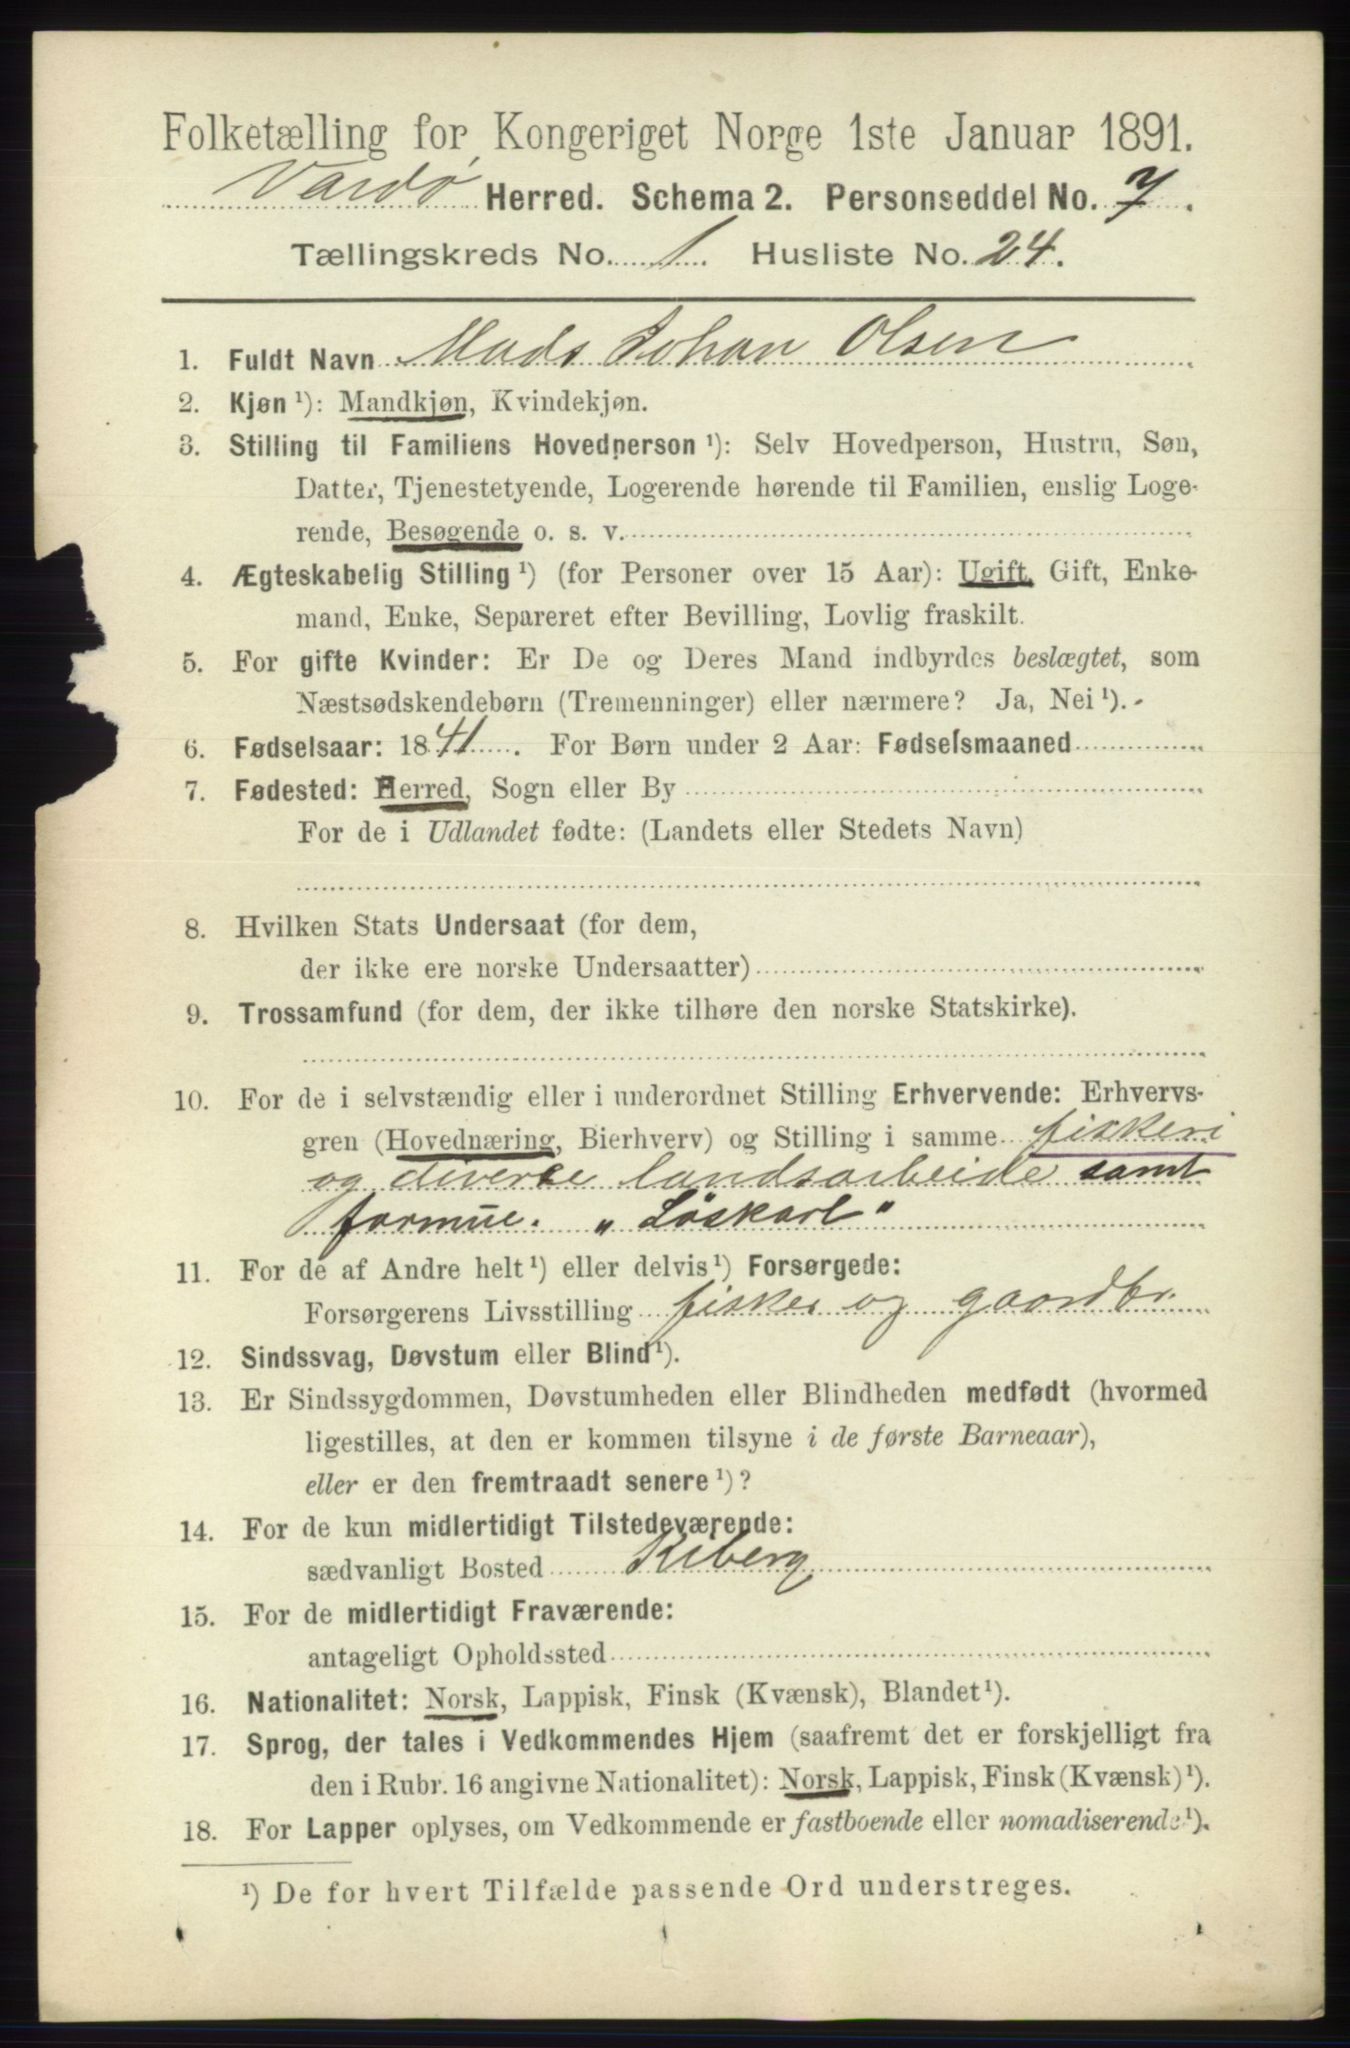 Folketælling for Kongeriget Norge 1ste Januar 1891.
Vardø Herred. Schema 2. Personseddel No. 7.
Tællingskreds No. 1. Husliste No. 24.
1. Fuldt Navn Mads Johan Olsen
2. Kjøn ¹): Mandkjøn, Kvindekjøn.
3. Stilling til Familiens Hovedperson ¹): Selv Hovedperson, Hustru, Søn,
Datter, Tjenestetyende, Logerende hørende til Familien, enslig Loge-
rende, Besøgende o. s. v.
4. Ægteskabelig Stilling ¹) (for Personer over 15 Aar): Ugift, Gift, Enke-
mand, Enke, Separeret efter Bevilling, Lovlig fraskilt.
5. For gifte Kvinder: Er De og Deres Mand indbyrdes beslægtet, som
Næstsødskendebørn (Tremenninger) eller nærmere? Ja, Nei ¹). -
6. Fødselsaar: 1841. For Børn under 2 Aar: Fødselsmaaned
7. Fødested: Herred, Sogn eller By
For de i Udlandet fødte: (Landets eller Stedets Navn)
8. Hvilken Stats Undersaat (for dem,
der ikke ere norske Undersaatter)
9. Trossamfund (for dem, der ikke tilhøre den norske Statskirke).
10. For de i selvstændig eller i underordnet Stilling Erhvervende: Erhvervs-
gren (Hovednæring, Bierhverv) og Stilling i samme fiskeri
og diverse landsarbeide samt
formue. „Løskarl"
11. For de af Andre helt ¹) eller delvis ¹) Forsørgede:
Forsørgerens Livsstilling fisker og gaardbr.
12. Sindssvag, Døvstum eller Blind ¹).
13. Er Sindssygdommen, Døvstumheden eller Blindheden medfødt (hvormed
ligestilles, at den er kommen tilsyne i de første Barneaar),
eller er den fremtraadt senere ¹)?
14. For de kun midlertidigt Tilstedeværende:
sædvanligt Bosted Kiberg
15. For de midlertidigt Fraværende:
antageligt Opholdssted
16. Nationalitet: Norsk, Lappisk, Finsk (Kvænsk), Blandet ¹).
17. Sprog, der tales i Vedkommendes Hjem (saafremt det er forskjelligt fra
den i Rubr. 16 angivne Nationalitet): Norsk, Lappisk, Finsk (Kvænsk) ¹).
18. For Lapper oplyses, om Vedkommende er fastboende eller nomadiserende ¹).
¹) De for hvert Tilfælde passende Ord understreges.